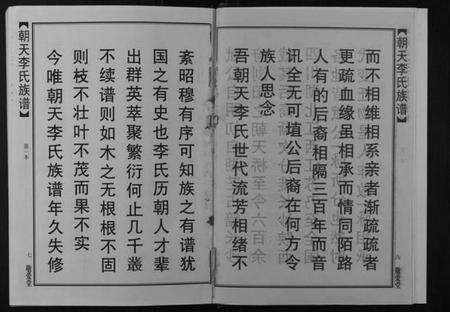 朝天李氏族谱
而不相维相系亲者渐疏疏者
更疏血缘虽相承而情同陌路
人有的后裔相隔三百年而音
讯全无可埴公后裔在何方令
族人思念
吾朝天李氏世代流芳相绪不
六
紊昭穆有序可知族之有谱犹
国之有史也李氏历朝人才辈
出群英萃聚繁衍何止几千叢
不续谱则如木之无根根不固
则枝不壮叶不茂而果不实
今唯朝天李氏族谱年久失修
朝天李氏族谱
第一本
七